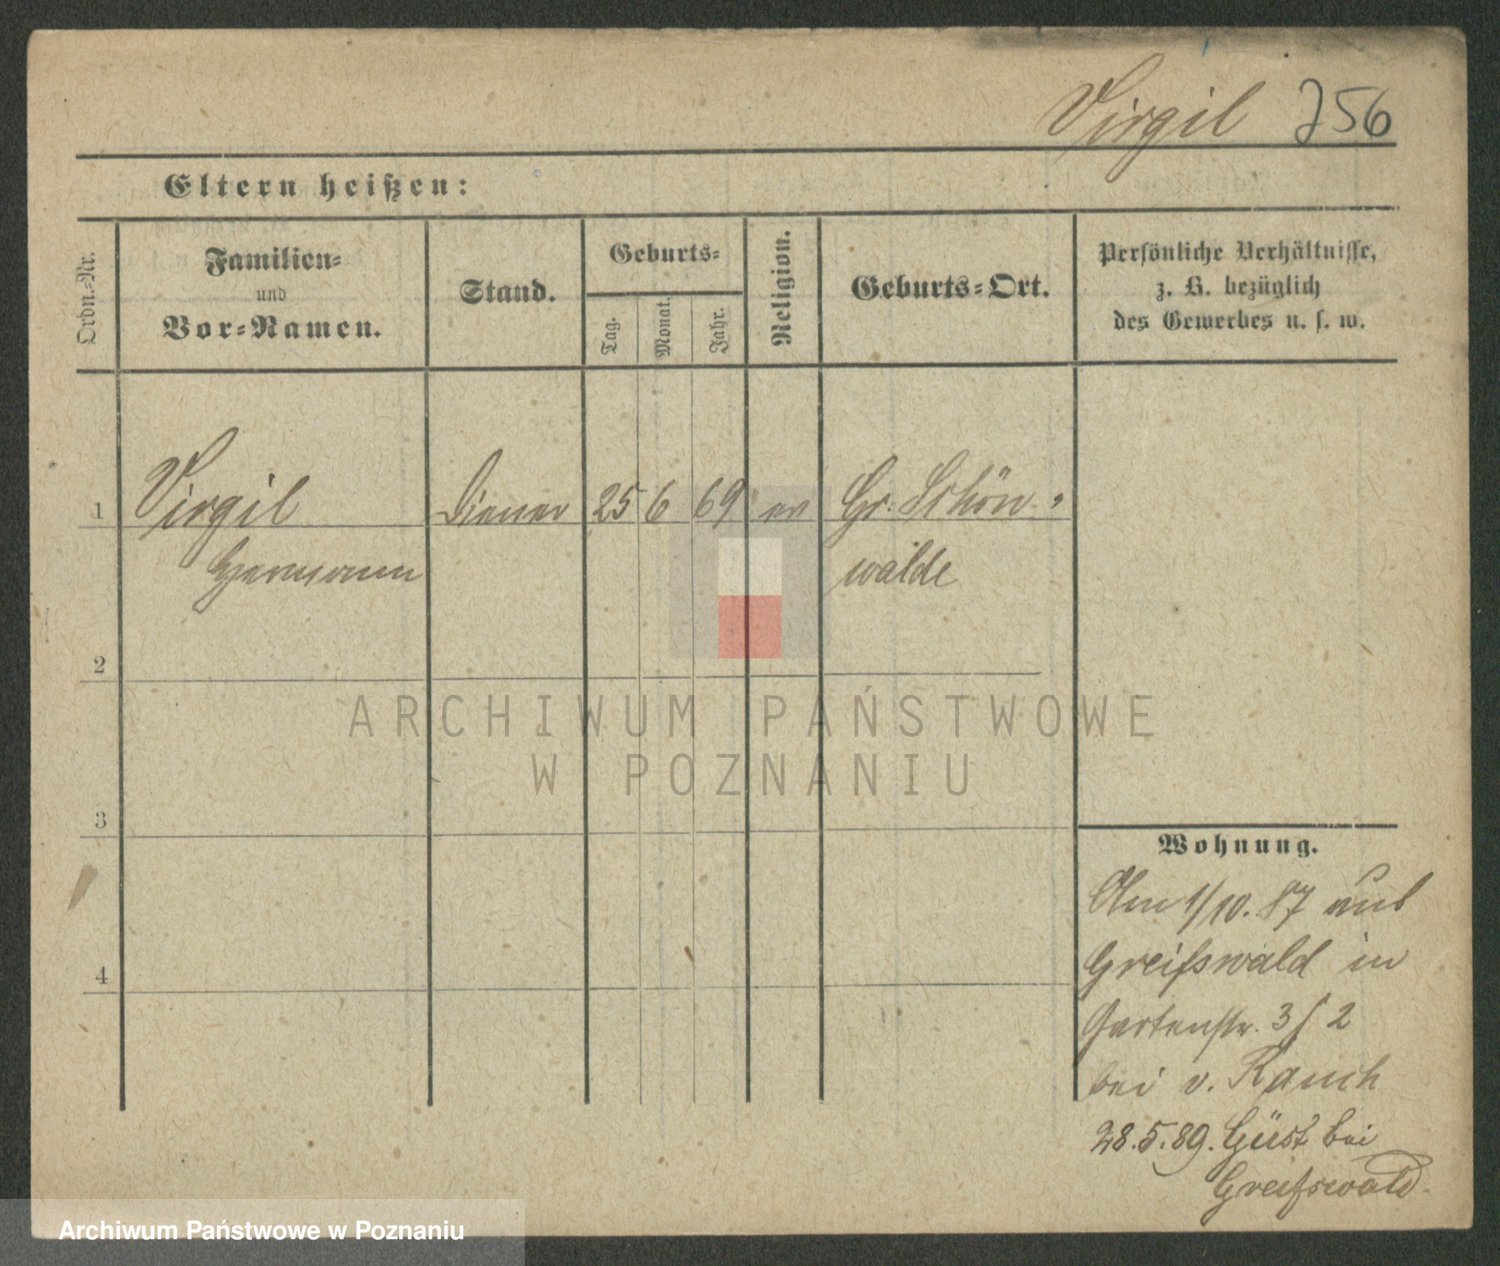 Virgil 756
Eltern heißen:
Ordn.-Nr.
Familien-
und
Vor-Namen.
Stand.
Geburts-
Tag.
Monat.
Jahr.
Religion.
Geburts-Ort.
Persönliche Verhältnisse,
z. B. bezüglich
des Gewerbes u. s. w.
1 Virgil Diener 25 6 69 ev Gr. Schön-
Hermann walde
2
3
4
Wohnung.
Am 1/10. 87 aus
Greifswald in
Gartenstr. 3 2
bei v. Rauch
28.5.89. Güst bei
Greifswald.
ARCHIWUM PAŃSTWOWE
W POZNANIU
Archiwum Państwowe w Poznaniu